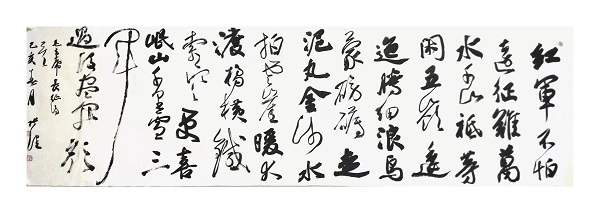 紅軍不怕
遠征難萬
水千山祇等
閑五嶺逶
迤騰細浪烏
蒙磅礴走
泥丸金沙水
拍雲崖暖大
渡橋橫鐵
索寒更喜
岷山千里雪三
軍
過後盡開顏
毛主席長征詩
己亥月